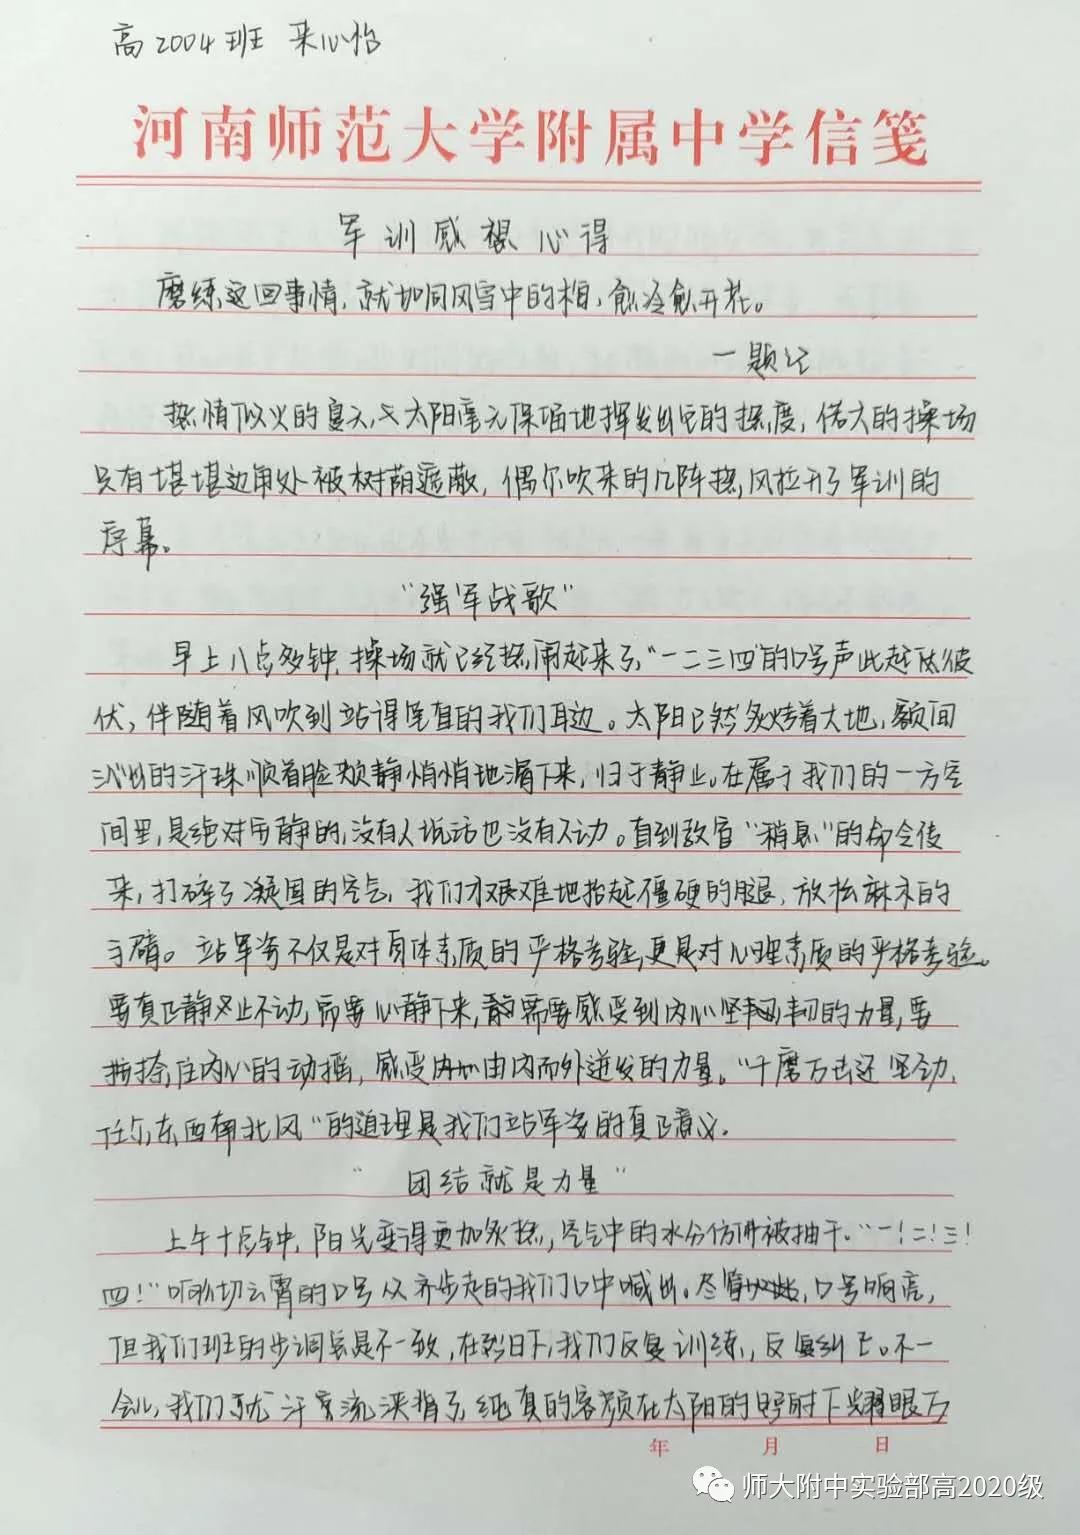 高2004班 宋心怡
河南师范大学附属中学信笺
军训感想心得
磨练这回事情,就如同风雪中的梅,愈冷愈开花。
一题记
热情似火的夏天,太阳毫无保留地挥发出它的热度,偌大的操场
只有堪堪边角处被树荫遮蔽,偶尔吹来的几阵热风拉开了军训的
序幕。
“强军战歌”
早上八点多钟,操场就已经热闹起来了,“一二三四”的口号声此起彼
伏,伴随着风吹到站得笔直的我们耳边。太阳已然炙烤着大地,额间
沁出的汗珠顺着脸颊静悄悄地滴下来,归于静止。在属于我们的一方空
间里,是绝对安静的,没有人说话也没有人动。直到教官“稍息”的命令传
来,打碎了凝固的空气,我们才艰难地抬起僵硬的腿,放松麻木的
手臂。站军姿不仅是对身体素质的严格考验,更是对心理素质的严格考验。
要真正静止不动,需要心静下来,需要感受到内心坚韧的力量,要
按捺住内心的动摇,感受由内而外迸发的力量。“千磨万击还坚劲,
任尔东西南北风”的道理是我们站军姿的真正意义。
“团结就是力量”
上午十点钟,阳光变得更加炙热,空气中的水分仿佛被抽干。“一!二!三!
四!”响彻云霄的口号从齐步走的我们口中喊出。尽管口号响亮,
但我们班的步调总是不一致,在烈日下,我们反复训练,反复纠正。不一
会儿,我们就汗流浃背了,纯真的容颜在太阳的照射下耀眼万
年 月 日
师大附中实验部高2020级